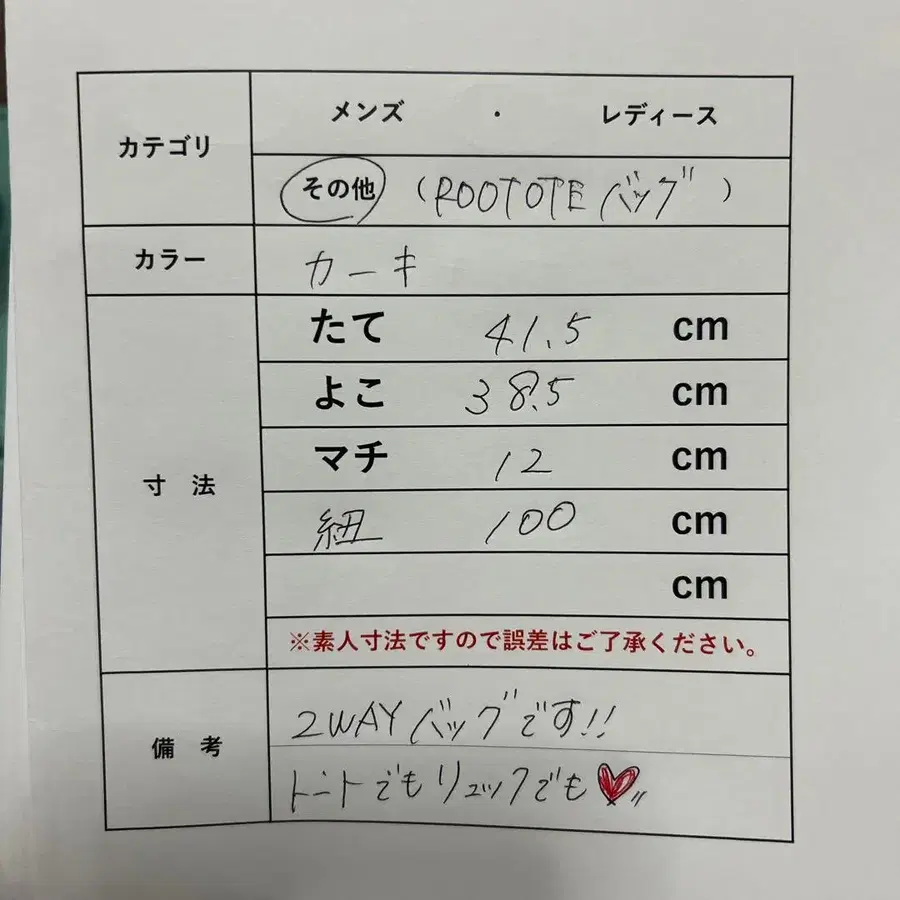 カテゴリ
メンズ ・ レディース
その他 (ROOTOTEバッグ)
カラー
カーキ
寸 法
たて 41.5 cm
よこ 38.5 cm
マチ 12 cm
紐 100 cm
cm
※素人寸法ですので誤差はご了承ください。
備 考
2WAYバッグです!!
トートでもリュックでも♥〃